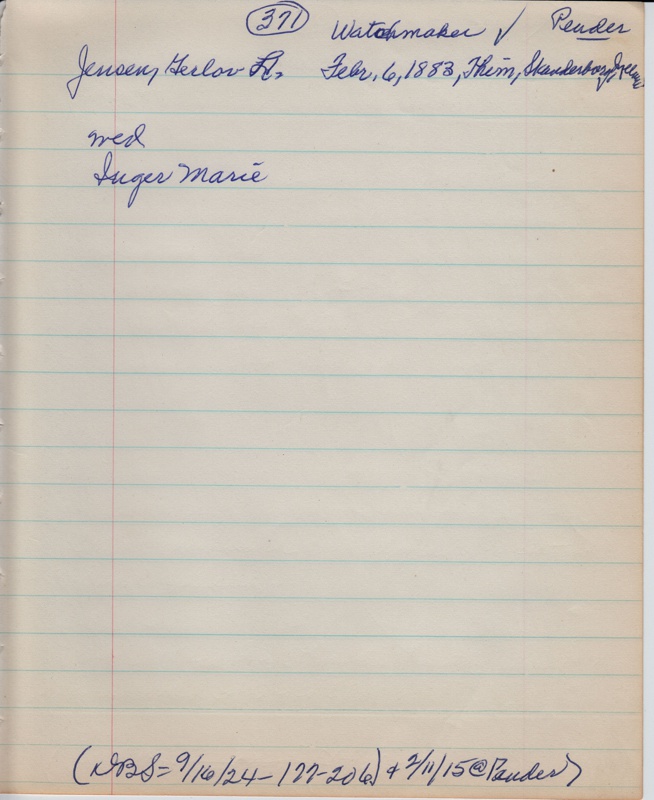 371 Watchmaker ✓ Pender
Jensen, Gerlov Fr. Febr. 6, 1883, Thim, Skanderborg,
wed
Inger Marie
(DBS = 9/16/24 - 177-206) + 2/11/15 @ Pender)